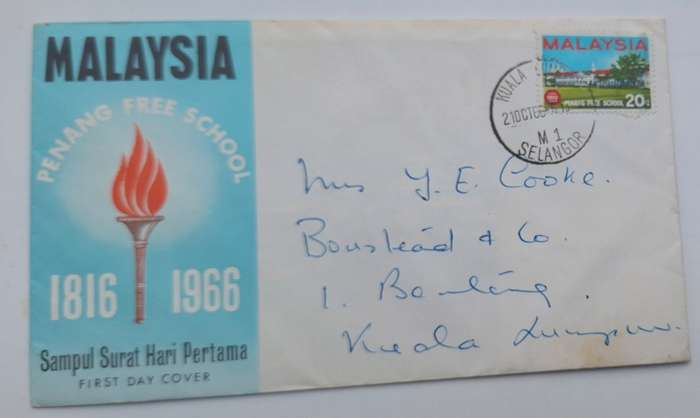 MALAYSIA
PENANG FREE SCHOOL
1816 1966
Sampul Surat Hari Pertama
FIRST DAY COVER
MALAYSIA
PENANG FREE SCHOOL 20c
KUALA
21OCT66
M 1
SELANGOR
Mrs Y. E. Cooke.
Boustead & Co.
1.
Kuala Lumpur.